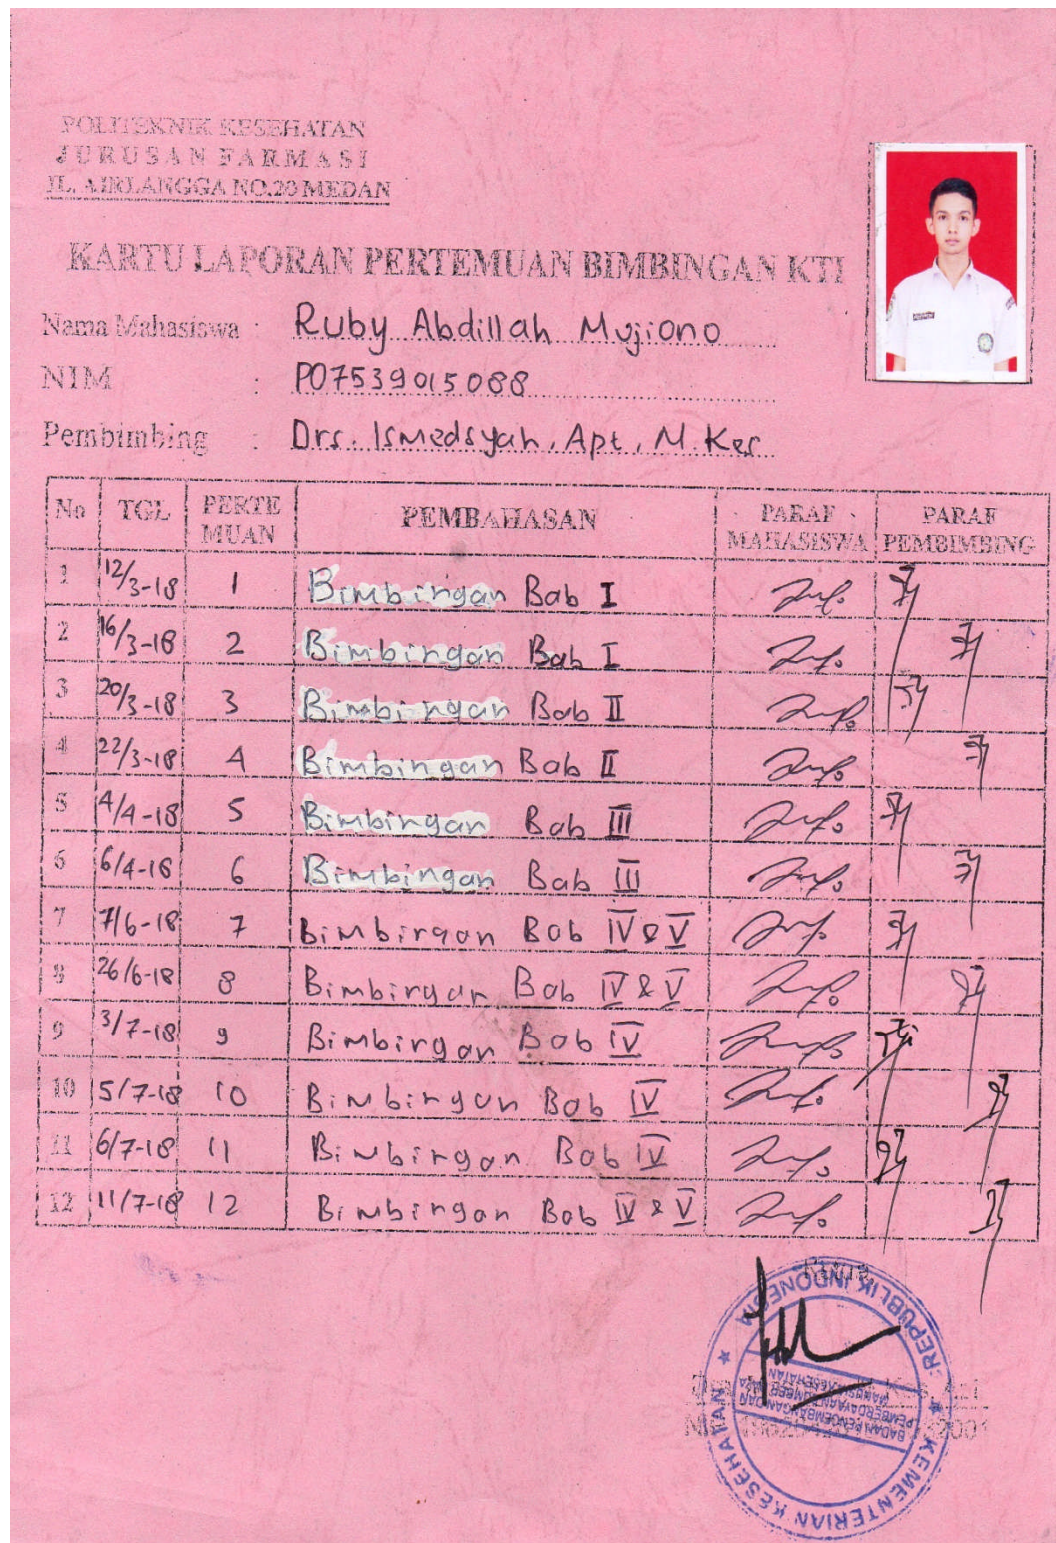 POLITEKNIK KESEHATAN
JURUSAN FARMASI
JL. AIRLANGGA NO.20 MEDAN
KARTU LAPORAN PERTEMUAN BIMBINGAN KTI
Nama Mahasiswa : Ruby Abdillah Mujiono
NIM : P07539015088
Pembimbing : Drs. Ismedsyah, Apt, M. Kes
No TGL PERTE MUAN PEMBAHASAN PARAF MAHASISWA PARAF PEMBIMBING
1 12/3-18 1 Bimbingan Bab I
2 16/3-18 2 Bimbingan Bab I
3 20/3-18 3 Bimbingan Bab II
4 22/3-18 4 Bimbingan Bab II
5 4/4-18 5 Bimbingan Bab III
6 6/4-18 6 Bimbingan Bab III
7 7/6-18 7 Bimbingan Bab IV & V
8 26/6-18 8 Bimbingan Bab IV & V
9 3/7-18 9 Bimbingan Bab IV
10 5/7-18 10 Bimbingan Bab IV
11 6/7-18 11 Bimbingan Bab IV
12 11/7-18 12 Bimbingan Bab IV & V
Ketua
KEMENTERIAN KESEHATAN
REPUBLIK INDONESIA
BADAN PENGEMBANGAN DAN
PEMBERDAYAAN SUMBER DAYA
MANUSIA KESEHATAN